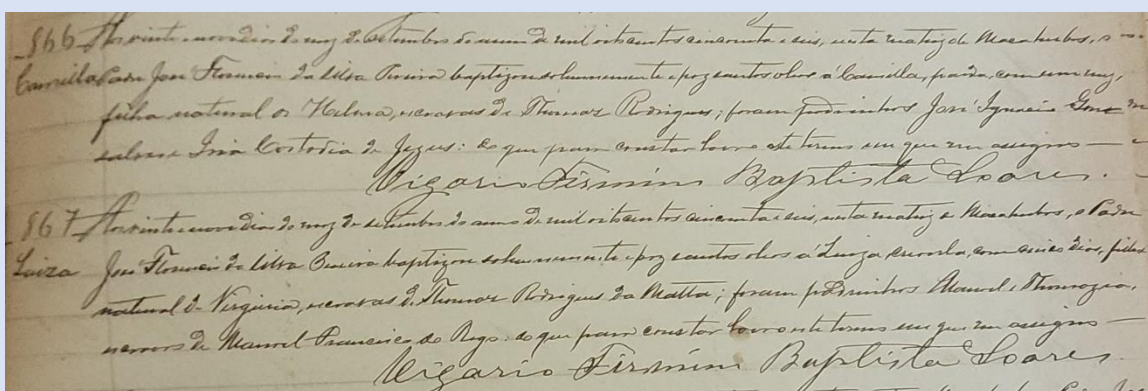 866 Aos vinte e nove dias do mez de setembro do anno de mil oitocentos cincoenta e seis, nesta matriz de Macahubas, o
Camilla Padre José Florencio da Silva Pereira baptizou solemnemente e poz santos oleos á Camilla, parda, com um mez,
filha natural de Helena, escravas de Thomaz Rodrigues; foram padrinhos José Ignacio Gon
salves e Iria Custodia de Jezus: do que para constar lavro este termo em que me assigno
Vigario Firmino Baptista Soares.
867 Aos vinte e nove dias do mez de setembro do anno de mil oitocentos cincoenta e seis, nesta matriz de Macahubas, o Padre
Luiza José Florencio da Silva Pereira baptizou solemnemente e poz santos oleos á Luiza, crioula, com cinco dias, filha
natural de Virginia, escravas de Thomaz Rodrigues da Matta; foram padrinhos Manoel e
escravos de Manoel Francisco do Rego: do que para constar lavro este termo em que me assigno
Vigario Firmino Baptista Soares.